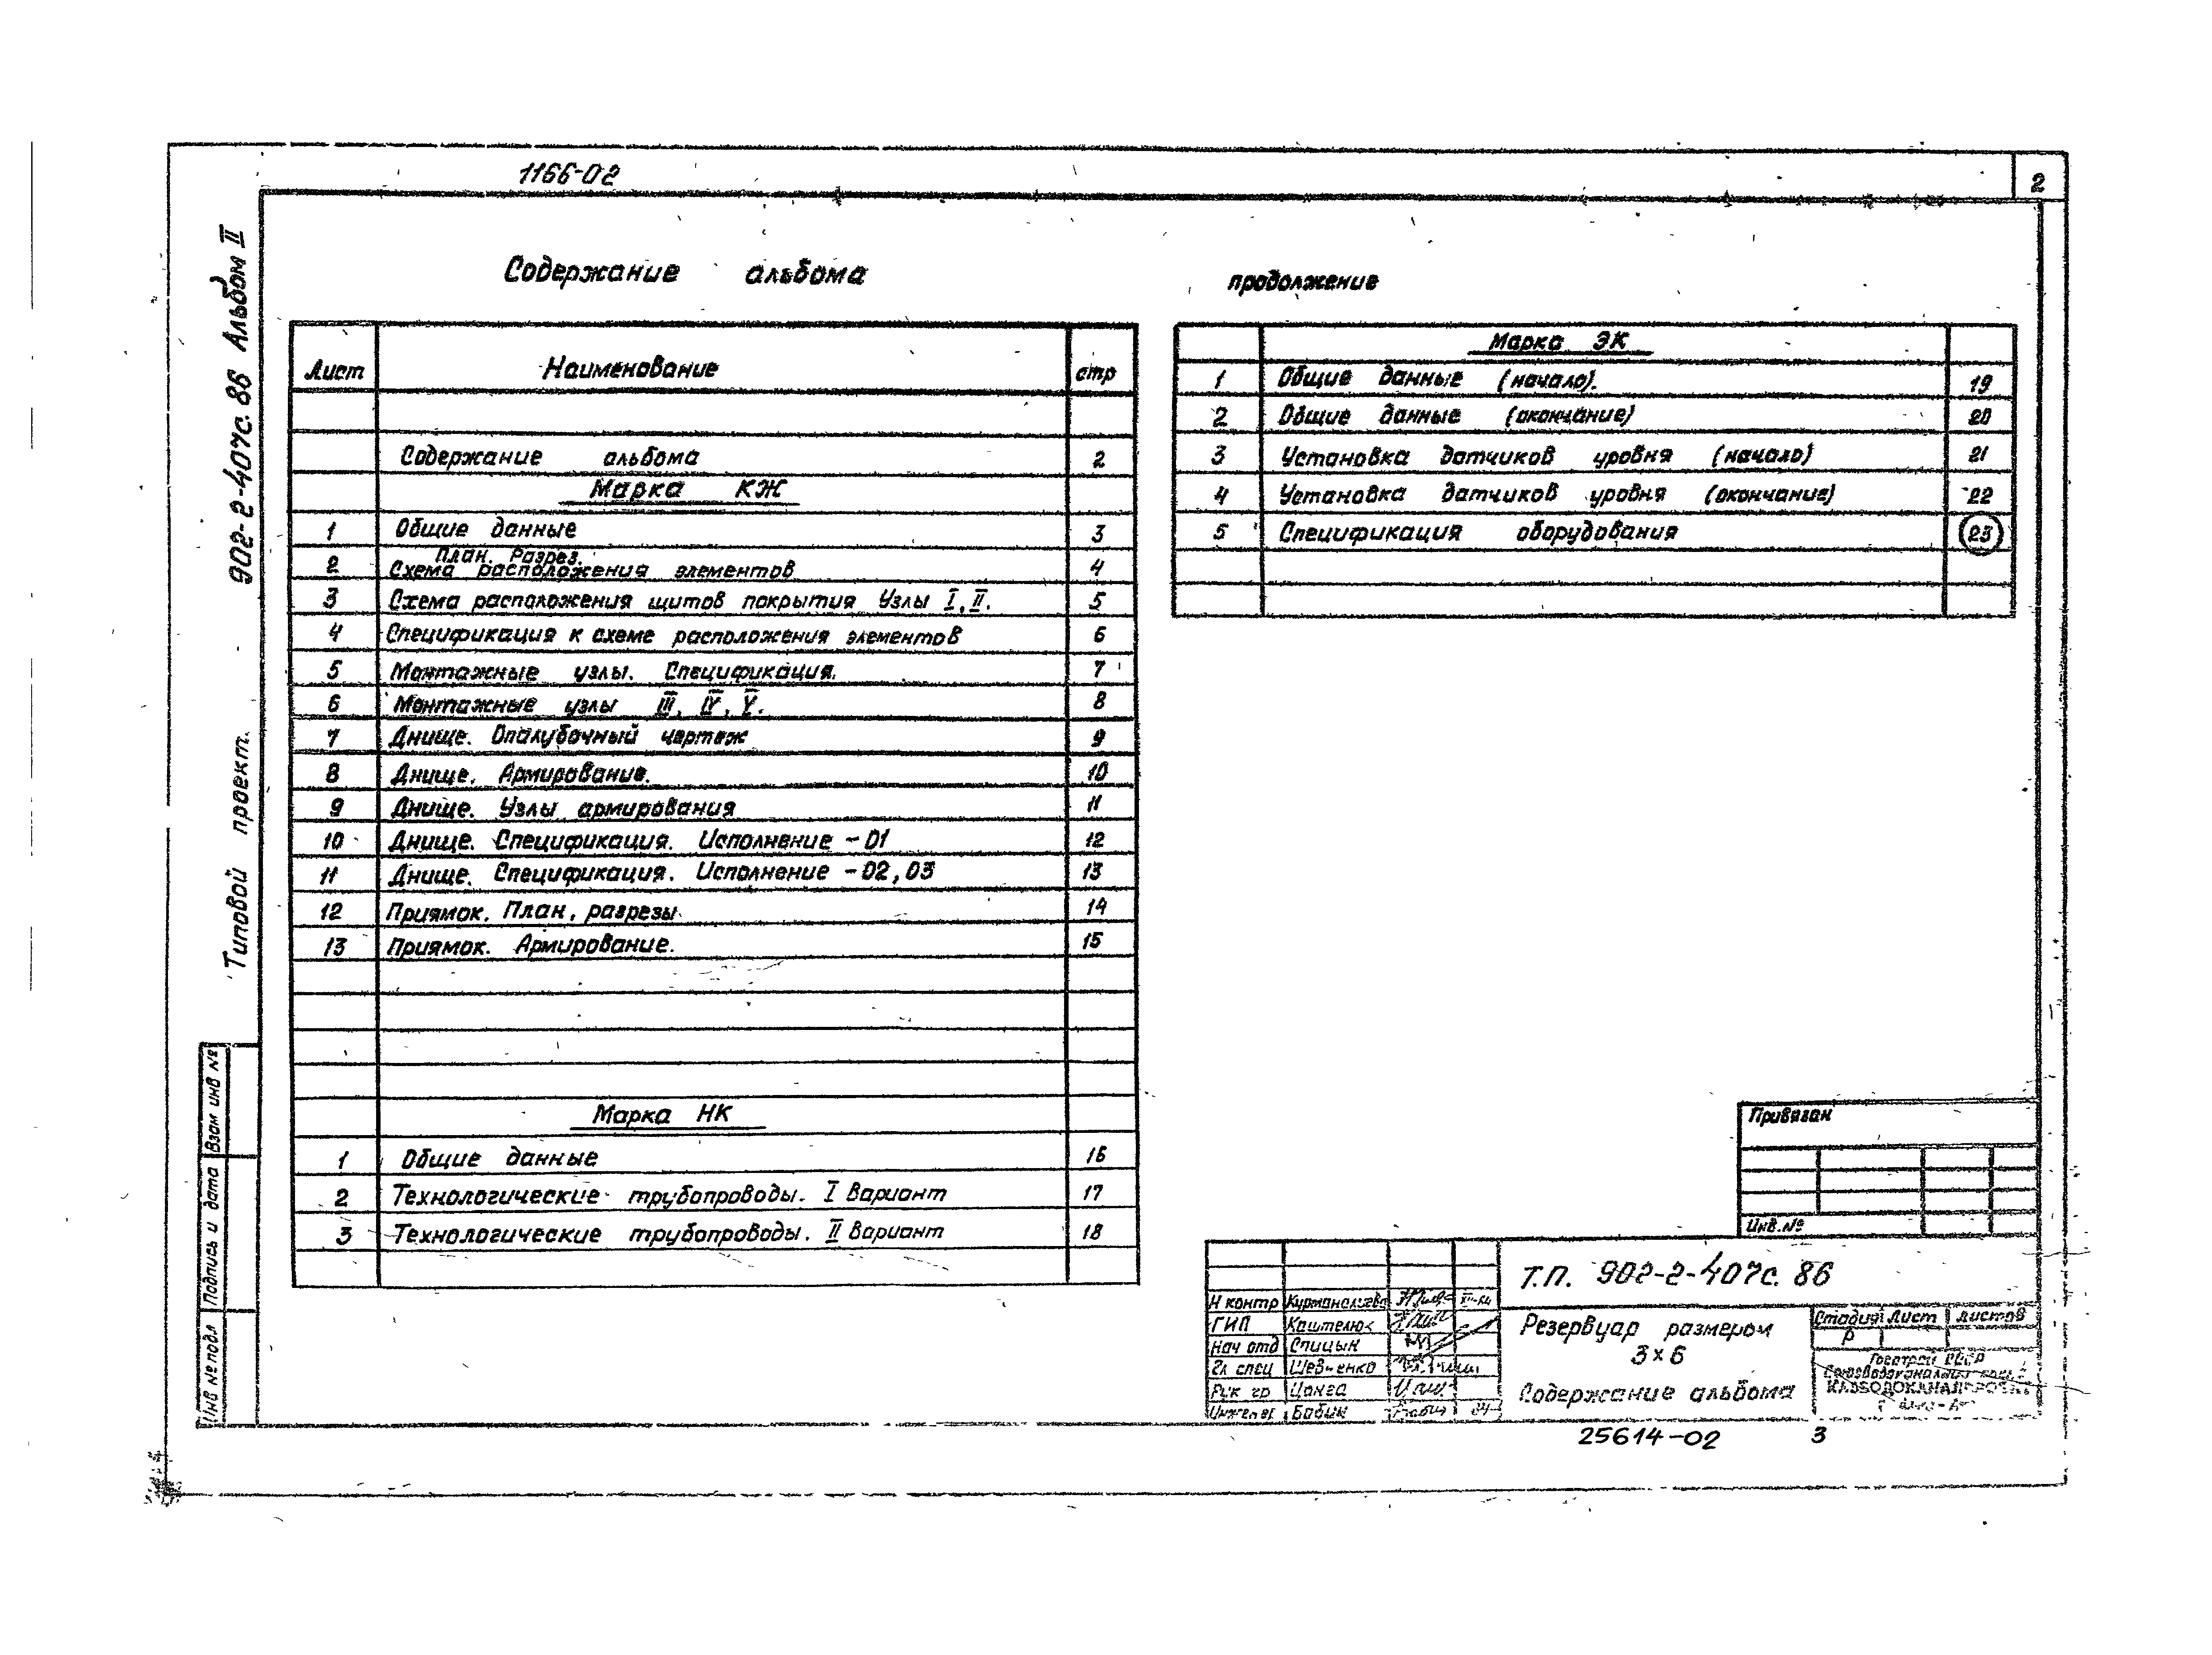 1166-02
2
902-2-407с.86 Альбом II
Типовой проект.
Содержание альбома
Лист Наименование стр
Содержание альбома 2
Марка КЖ
1 Общие данные 3
План. Разрез.
2 Схема расположения элементов 4
3 Схема расположения щитов покрытия Узлы I, II. 5
4 Спецификация к схеме расположения элементов 6
5 Монтажные узлы. Спецификация. 7
6 Монтажные узлы III, IV, V. 8
7 Днище. Опалубочный чертеж 9
8 Днище. Армирование. 10
9 Днище. Узлы армирования 11
10 Днище. Спецификация. Исполнение -01 12
11 Днище. Спецификация. Исполнение -02, 03 13
12 Приямок. План, разрезы 14
13 Приямок. Армирование. 15
Марка НК
1 Общие данные 16
2 Технологические трубопроводы. I Вариант 17
3 Технологические трубопроводы. II Вариант 18
продолжение
Марка ЭК
1 Общие данные (начало). 19
2 Общие данные (окончание) 20
3 Установка датчиков уровня (начало) 21
4 Установка датчиков уровня (окончание) 22
5 Спецификация оборудования 23
Взам инв №
Подпись и дата
Инв № подл
Привязан
Инв.№
Т.П. 902-2-407с.86
Н контр Курманалиева
ГИП Каштелюк
Нач отд Спицын
Гл спец Шевченко
Рук гр Цонга
Инженер Бабик
Резервуар размером
3×6
Содержание альбома
Стадия Лист Листов
Р
Госстрой СССР
25614-02 3